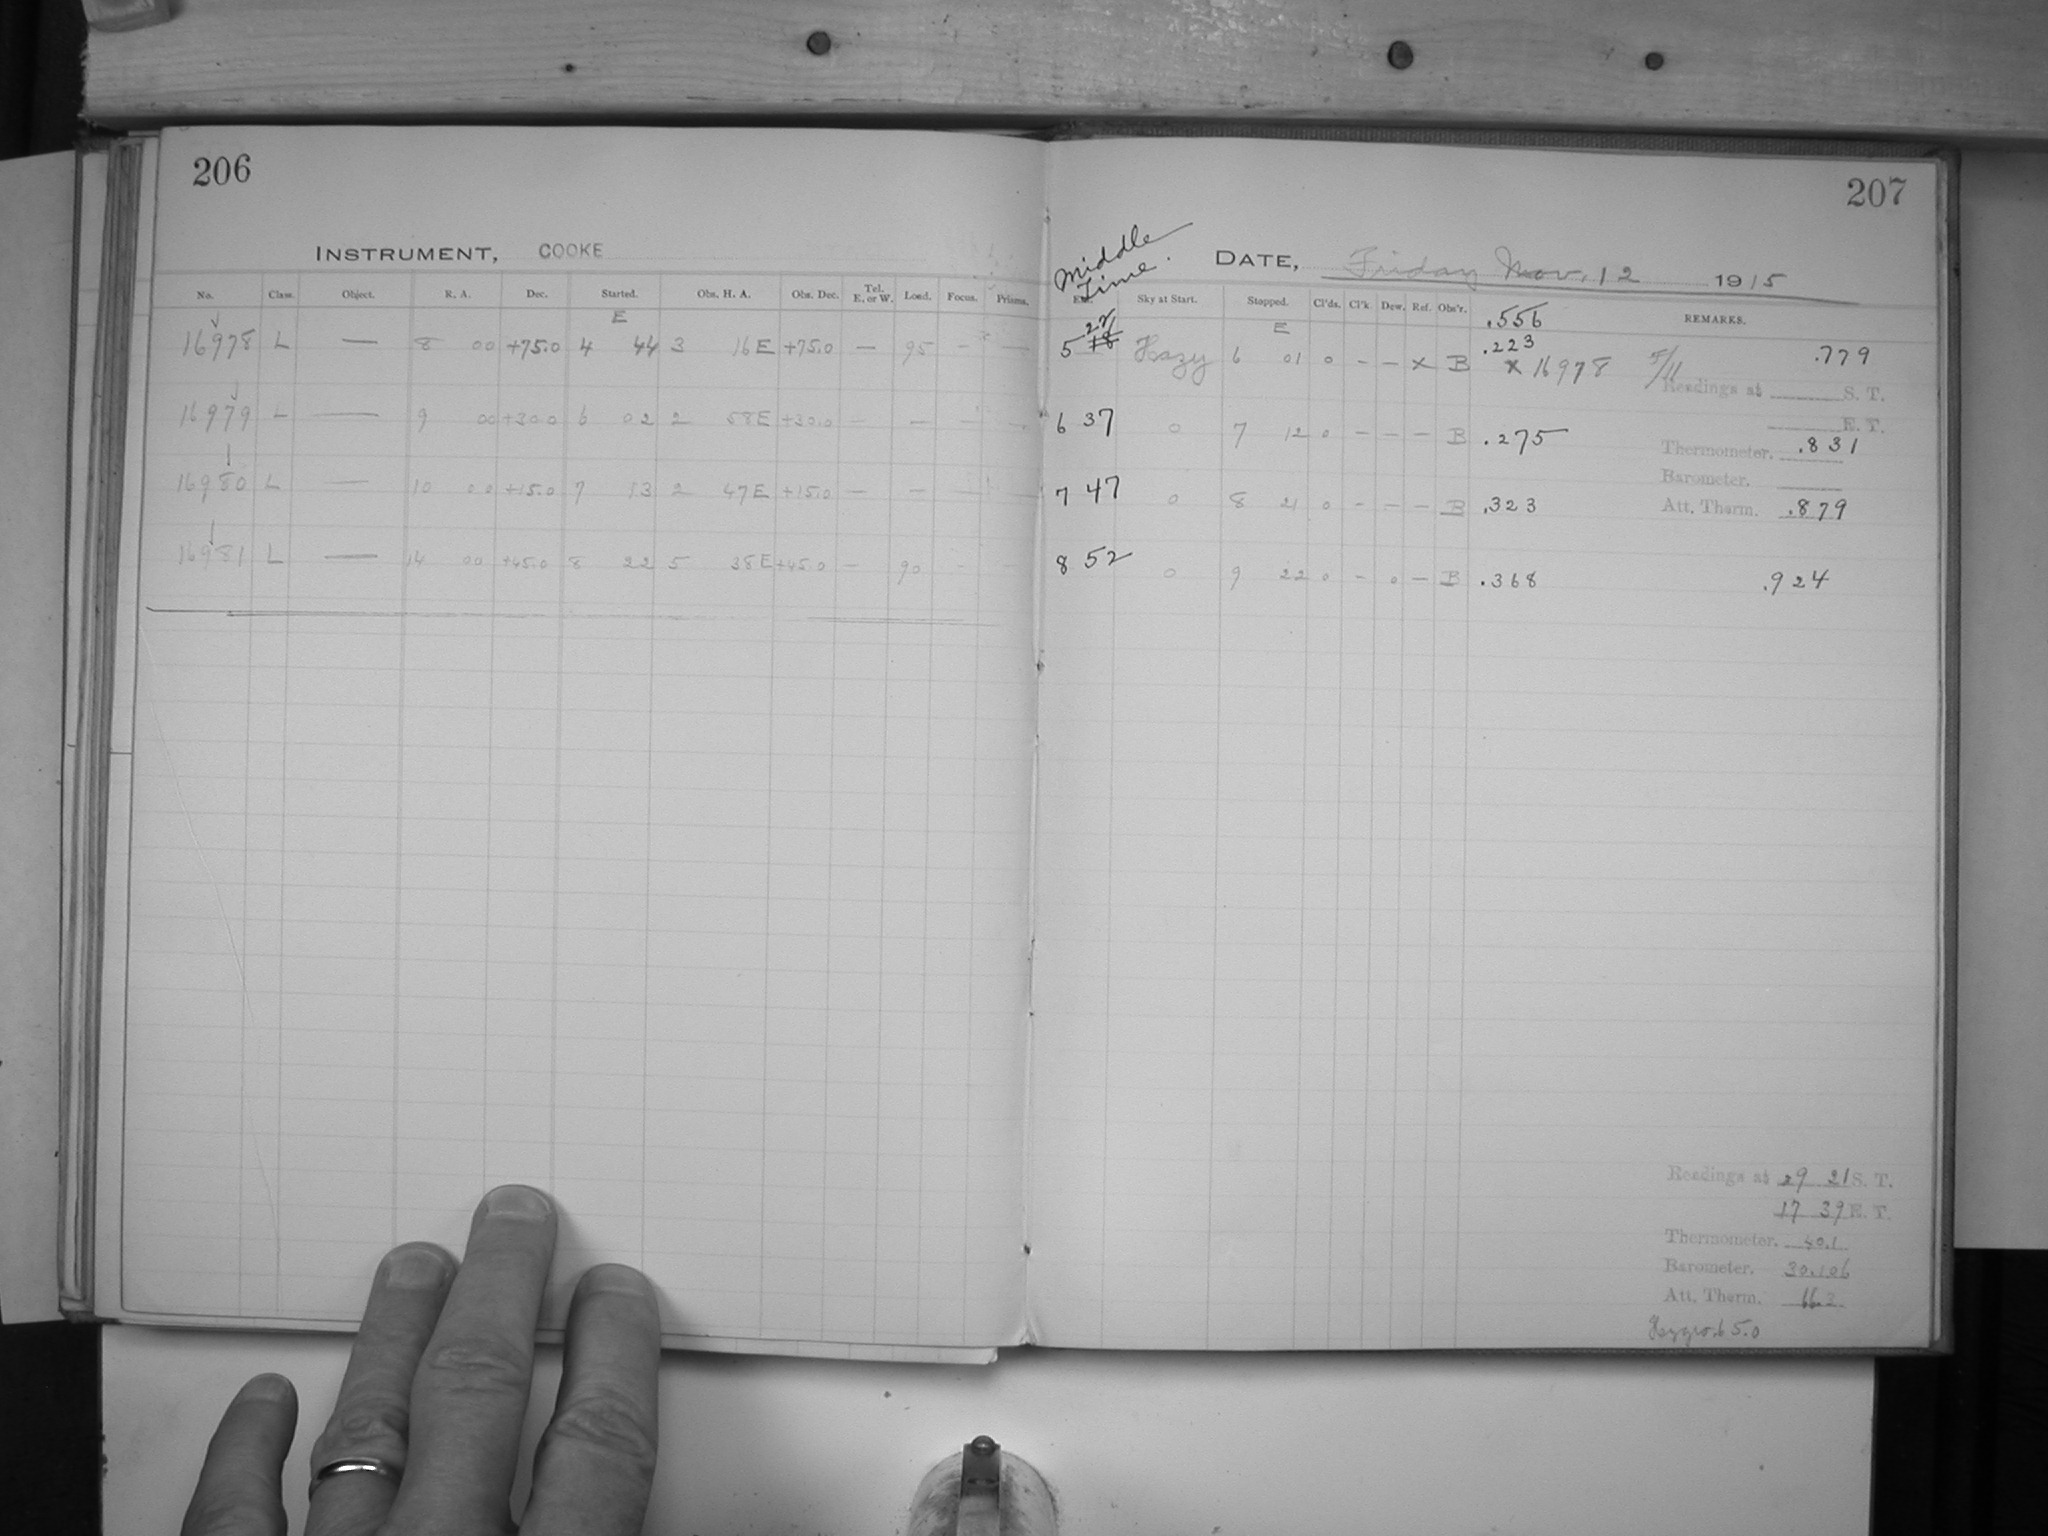 206
INSTRUMENT, COOKE
No. Class. Object. R. A. Dec. Started. Obs. H. A. Obs. Dec. Tel. E. or W. Load. Focus. Prisms.
E
16978 L — 8 00 +75.0 4 44 3 16E +75.0 — 95 - —
16979 L — 9 00 +30.0 6 02 2 58E +30.0 — — - -
16980 L — 10 00 +15.0 7 13 2 47E +15.0 — — — -
16981 L — 14 00 +45.0 8 22 5 38E +45.0 — 90 - -
207
Middle Time.
DATE, Friday Nov. 12 1915
Sky at Start. Stopped. Cl'ds. Cl'k. Dew. Ref. Obs'r. REMARKS.
E .556
22 .223
5 18 Hazy 6 01 0 - - x B x 16978 5/11 .779
Readings at S. T.
E. T.
6 37 0 7 12 0 - - - B .275
Thermometer. .831
Barometer.
7 47 0 8 21 0 - - - B .323 Att. Therm. .879
8 52 0 9 22 0 - 0 - B .368 .924
Readings at 29 21 S. T.
17 39 E. T.
Thermometer. 40.1
Barometer. 30.106
Att. Therm. 66.2
Hygro. 65.0